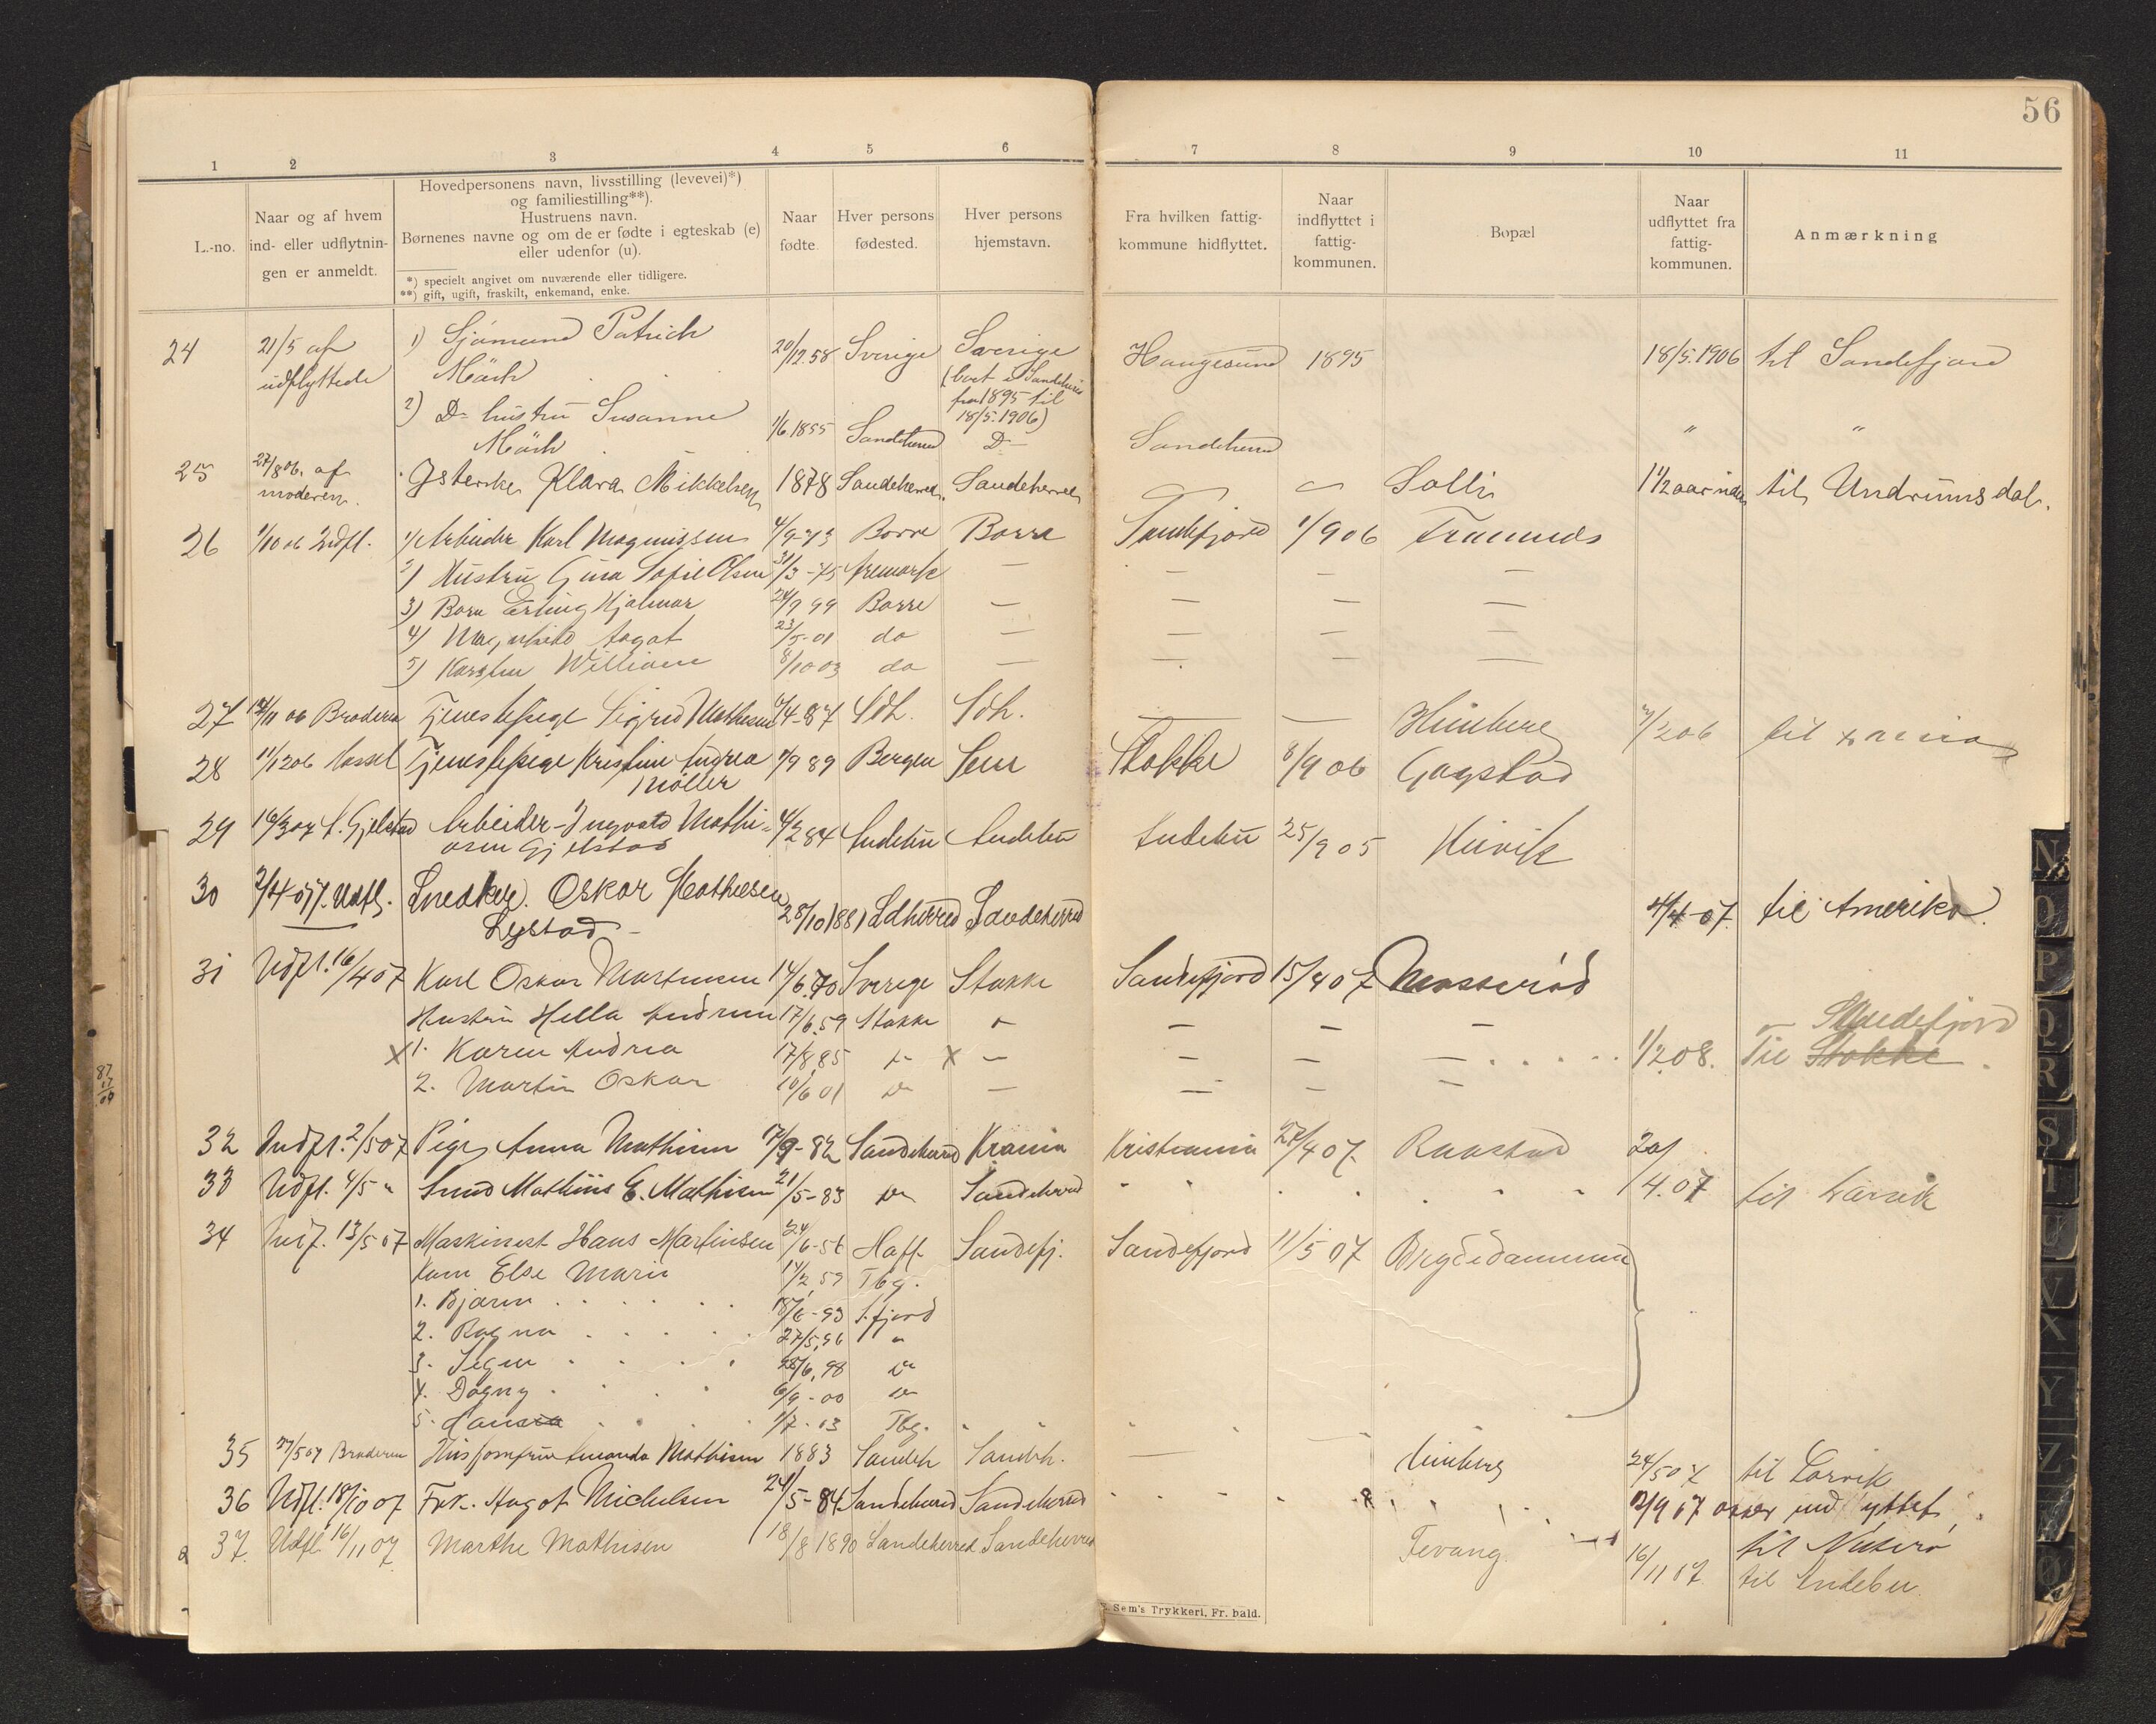 56
1 2 3 4 5 6 7 8 9 10 11
L.-no.
Naar og af hvem
ind- eller udflytnin-
gen er anmeldt.
Hovedpersonens navn, livsstilling (levevei)*)
og familiestilling**).
Hustruens navn.
Børnenes navne og om de er fødte i egteskab (e)
eller udenfor (u).
*) specielt angivet om nuværende eller tidligere.
**) gift, ugift, fraskilt, enkemand, enke.
Naar
fødte.
Hver persons
fødested.
Hver persons
hjemstavn.
Fra hvilken fattig-
kommune hidflyttet.
Naar
indflyttet i
fattig-
kommunen.
Bopæl
Naar
udflyttet fra
fattig-
kommunen.
Anmærkning
24 21/5 af 1) Sjømand Patrich 20/12.58 Sverige Sverige Haugesund 1895 18/5.1906 til Sandefjord
udflyttede Mäch (boet i Sandeherred
fra 1895 til
2) Do hustru Susanne 18/5.1906)
Mäch 1/6.1855 Sandeherred Do Sandeherred " "
25 27/8 06. af Klara Mikkelsen 1878 Sandeherred. Sandeherred Solli 1 1/2 aar siden til Undrumsdal.
moderen.
26 1/10 06 Indfl. 1) Arbeider Karl Magnussen 4/9-73 Borre Borre Sandefjord 1/9 06
2) Hustru Gina Sofie Olsen 31/3-75 Aremark — — — —
3) Barn Erling Hjalmar 24/9 99 Borre — — — —
4) Magnhild Aagot 23/5-01 do — — — —
5) Karsten William 8/10 03 do — — — —
27 12/11 06 Broderen Tjenestepige Sigrid Mathisen 4/4-87 Sdh. Sdh. — — Himberg 7/2 06 til
28 11/12 06 Tjenestepige Kristine Andrea 7/9 89 Bergen Sem Stokke 8/9 06 Gogstad
Möller
29 16/3 07 A. Gjelstad Arbeider Ingvald Mathi- 4/2 84 Andebu Andebu Andebu 25/9 05
asen Gjelstad
30 2/4-07. Udfl. Snedker. Oskar Mathiesen 28/10 1881 Sdherred Sandeherred 4/4-07. til Amerika.
Lystad
31 Udfl. 16/4 07 Karl Oskar Martinsen 14/6.70 Sverige Stokke Sandefjord 15/4 07 Mosserød
Hustru Hella Andrine 17/6.59 Stokke " — — — " Sandefjord
X 1. Karen Andrea 17/8,85 Do X — — — — 1/2.08. Til Stokke
2. Martin Oskar 10/6 01 Do — — — —
32 Indfl. 2/5 07 Pige Anna Mathisen 17/9-82 Sandeherred Krania Kristiania 27/4 07. Raastad
33 Udfl. 4/5 " Mathiis E. Mathisen 21/5-83 Do Sandeherred 20/4.07 til Larvik
34 Indf. 13/5 07 Maskinist Hans Martinsen 24/6-56 Haff Sandefj. Sandefjord 11/5 07 Brydedammen
Kone Else Marie 14/2 59 Tbg.
1. Bjarne 18/6-93 S.fjord
2. Ragna 27/5,96 "
3. Signe 28/6,98 Do
4. Dagny 6/9-00 Do
5. 1/7-03 Tbg.
35 27/5 07 Broderen Husjomfru Amanda Mathisen 1883 Sandeh Sandeh. — — Himberg 24/5 07 til Larvik
36 Udfl. 18/10 07 Frk. Aagot Michelsen 24/5-84 Sandeherred Sandeherred 12/9 07
til Nøterø
37. Udfl. 16/11 07 Marthe Mathisen 18/8 1890 Sandeherred Sandeherred Fevang. 16/11 07. til Andebu.
E. Sem's Trykkeri, Fr. hald.
N
O
P
Q
R
S
T
U
V
X
Y
Z
Æ
Ø